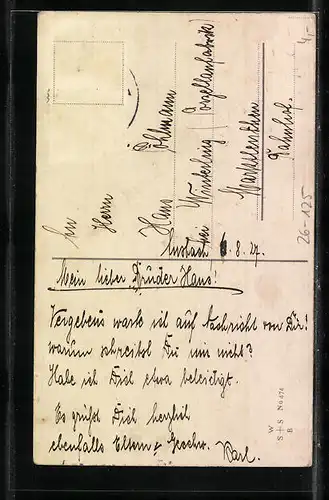 An
Herrn
Hans Pöhlmann
Winterling Porzellanfabrik
Marktleuthen
Bahnhof.
4,-
26-125
8. 27.
Mein lieber Bruder Hans!
Vergebens warte ich auf Nachricht von Dir!
warum schreibst Du mir nicht?
Habe ich Dich etwa beleidigt.
Es grüßt Dich herzlich
ebenfalls Eltern + Geschw. Karl.
W
S + S No 674
B